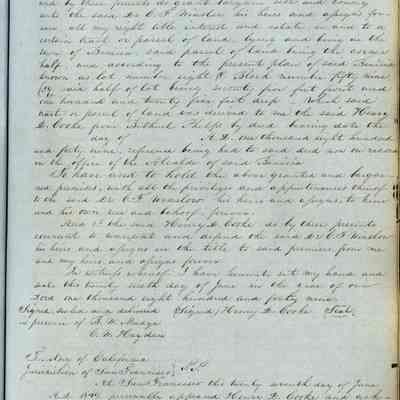 and by these presents do grant bargain sell and convey
unto the said Dr C. F. Winslow his heirs and assigns for-
ever all my right title interest and estate in and to a
certain tract or parcel of land lying and being in the
town of Benicia said parcel of land being the corner
half, and according to the present plan of said Benicia
known as lot number eight 8 Block number fifty nine
(59 said half of lot being seventy five feet front and
one hundred and twenty five feet deep – Which said
parcel of land was deeded to me the said Henry
D. Cooke from Bethuel Phelps by deed bearing date the
day of A.D. one thousand eight hundred
and forty nine, reference being had to said deed now on record
in the office of the Alcalde of said Benicia
To have and to hold the above granted and bargain-
ed premises, with all the privileges and appurtenances thereof
to the said Dr C. F. Winslow his heirs and assigns, to him
and his own use and behoof forever.
And I the said Henry D. Cooke do by these presents
covenant to warrant and defend the said Dr C. F. Winslow
his heirs and assigns in the title to said premises from me
and my heirs and assigns forever
In witness whereof I have hereunto set my hand and
seal this twenty sixth day of June in the year of our
Lord one thousand eight hundred and forty nine
Signed, sealed and delivered (Signed) Henry D. Cooke Seal
in presence of
C. W. Hayden
Territory of California
Jurisdiction of San Francisco, S.S.
At San Francisco this twenty seventh day of June
A.D. 1849 personally appeared Henry D. Cooke and